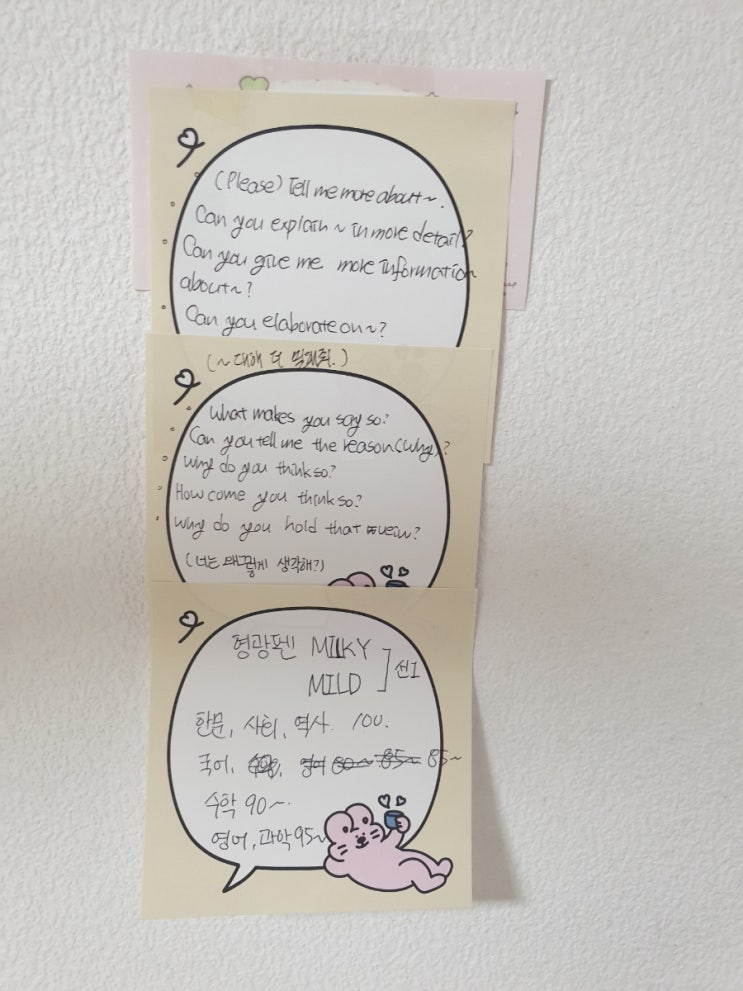 (Please) Tell me more about~.
Can you explain ~ in more detail?
Can you give me more information
about~?
Can you elaborate on~?
(~ 대해 더 말해줘.)
What makes you say so?
Can you tell me the reason(why)?
Why do you think so?
How come you think so?
Why do you hold that veiw?
(너는 왜 그렇게 생각해?)
형광펜 MILKY
MILD ] 선1
한문, 사회, 역사. 100.
국어, 영어 80~ 85~ 85~
수학 90~.
영어, 과학 95~